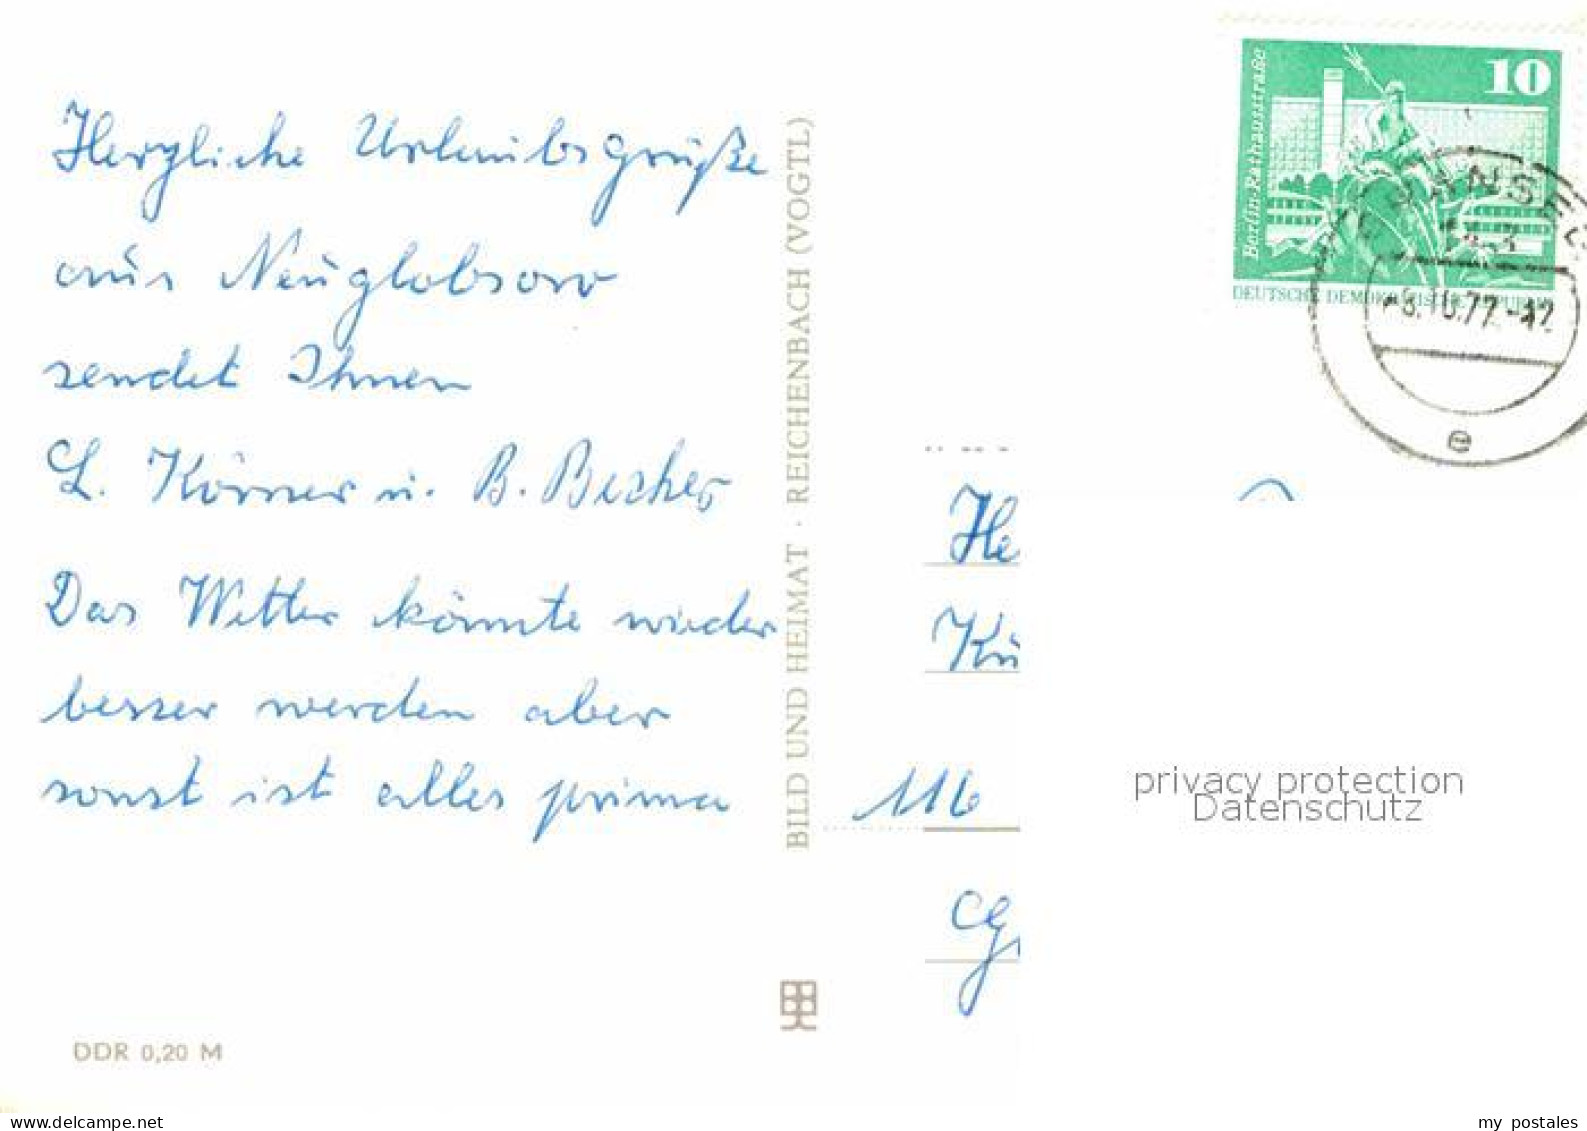 Herzliche Urlaubsgrüße
aus Neuglobsow
sendet Ihnen
L. Körner u. B. Becher
Das Wetter könnte wieder
besser werden aber
sonst ist alles prima
DDR 0,20 M
BILD UND HEIMAT · REICHENBACH (VOGTL)
10
Berlin-Rathausstraße
DEUTSCHE DEMOKRATISCHE REPUBLIK
.10.77.-12
e
He
Kü
116
privacy protection
Datenschutz
www.delcampe.net
my_postales